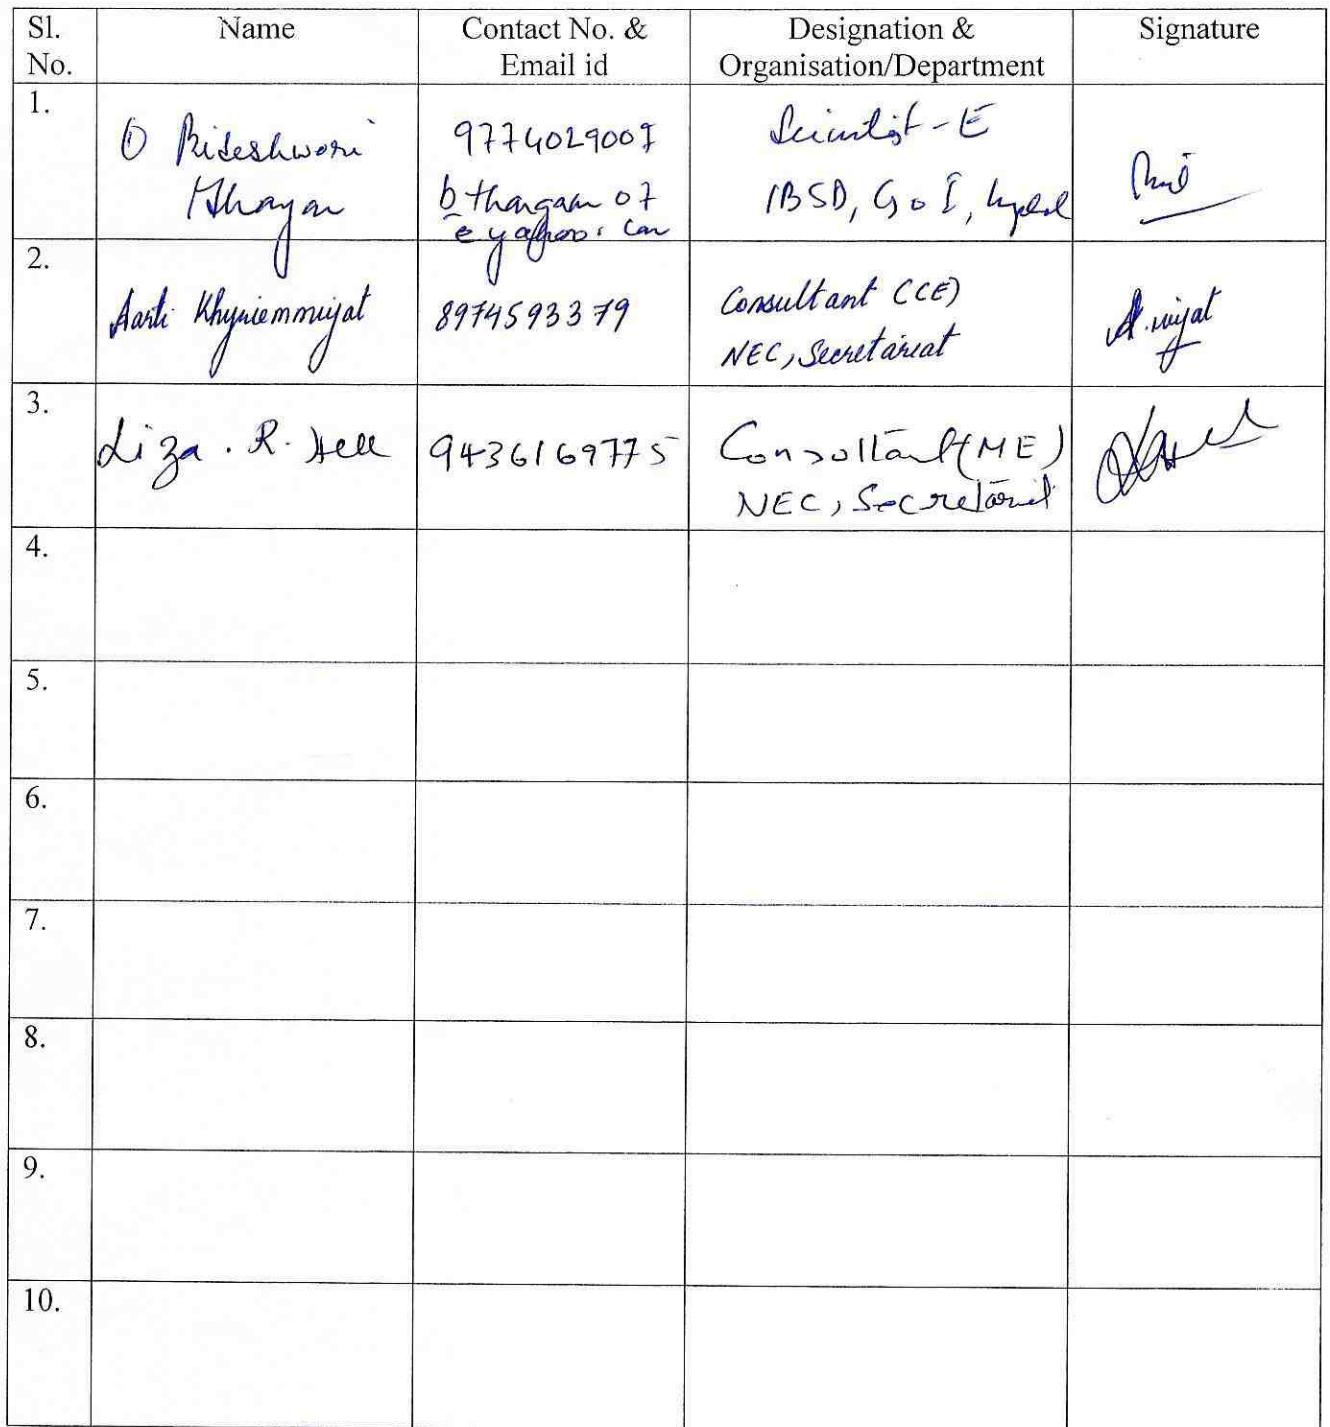 Sl. No. Name Contact No. & Email id Designation & Organisation/Department Signature
1.
Bideshwori
Thangam
9774029009
b thangam 07
@ yahoo. com
Scientist - E
IBSD, GoI,
2.
Aarti Khyriemmujat
8974593379
Consultant (CE)
NEC, Secretariat
A. mujat
3.
Liza . R.
9436169775
Consultant (ME)
NEC, Secretariat
4.
5.
6.
7.
8.
9.
10.